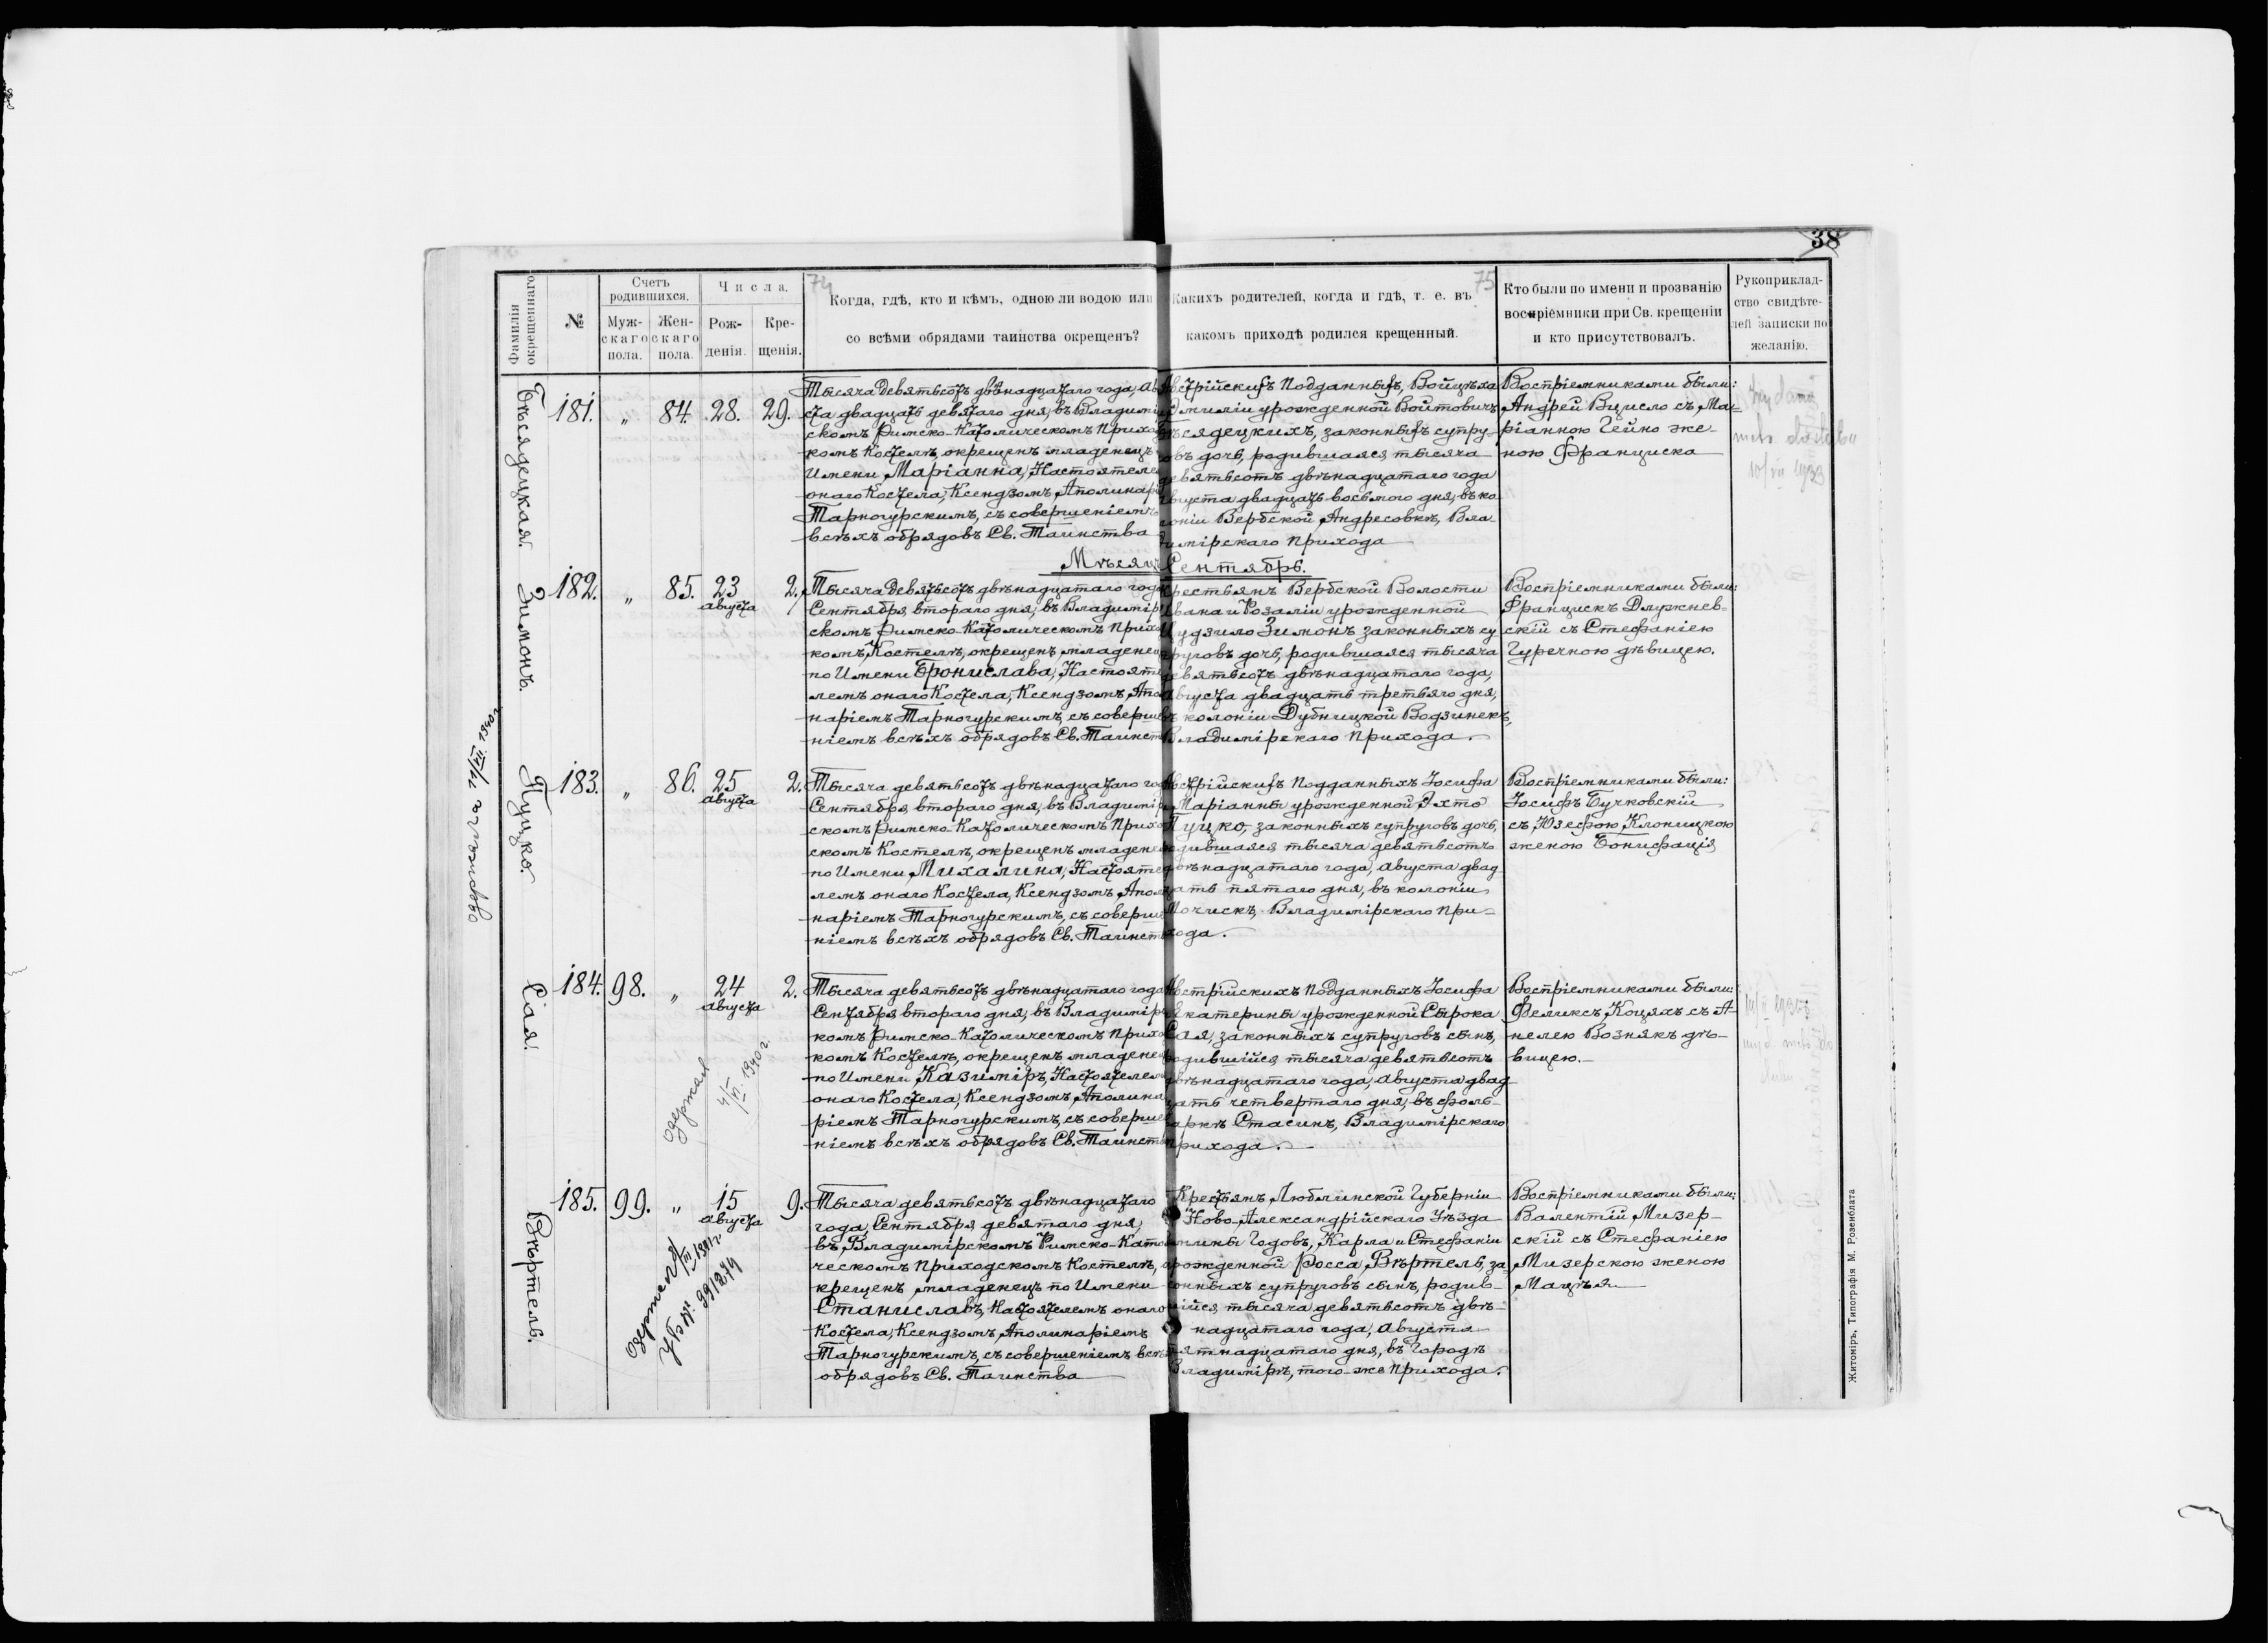 38
74
75
Фамилія окрещеннаго
№
Счетъ родившихся.
Мужскаго пола.
Женскаго пола.
Числа.
Рожденія.
Крещенія.
Когда, гдѣ, кто и кѣмъ, одною ли водою или
со всѣми обрядами таинства окрещенъ?
Какихъ родителей, когда и гдѣ, т. е. въ
какомъ приходѣ родился крещенный.
Кто были по имени и прозванію
воспріемники при Св. крещеніи
и кто присутствовалъ.
Рукоприклад-
ство свидѣте-
лей записки по
желанію.
Бѣсядецкая.
181. „ 84. 28. 29.
Тысяча девятьсотъ двѣнадцатаго года, Ав
ста двадцать девятаго дня, въ Владимі
скомъ Римско-Католическомъ Прихо
комъ Костелѣ, окрещенъ младенецъ
Имени Маріанна, Настоятеле
онаго Костела, Ксендзомъ Аполинарі
Тарногурскимъ, съ совершеніемъ
всѣхъ обрядовъ Св. Таинства
Австрійскихъ Подданныхъ, Войцѣха
Эмиліи урожденной Войтовичъ
Бѣсядецкихъ, законныхъ супру-
овъ дочь, родившаяся тысяча
девятьсотъ двѣнадцатаго года
Августа двадцать восьмого дня, въ ко
лоніи Вербской Андресовкѣ, Вла
димірскаго Прихода
Воспріемниками были:
Андрей Вцисло съ Ма-
ріанною Гейно же-
ною Франциска
10/VII 1933
Мѣсяцъ Сентябрь.
Зимонъ.
182. „ 85. 23 августа 2.
Тысяча девятьсотъ двѣнадцатаго год
Сентября второго дня, въ Владимір
скомъ Римско-Католическомъ Прихо
комъ Костелѣ, окрещенъ младенец
по Имени Бронислава, Настояте
лемъ онаго Костела, Ксендзомъ Апо
наріемъ Тарногурскимъ, съ соверше
ніемъ всѣхъ обрядовъ Св. Таинст
Крестьянъ Вербской Волости
Ивана и Розаліи урожденной
Цудзило Зимонъ законныхъ су
пруговъ дочь, родившаяся тысяча
девятьсотъ двѣнадцатаго года,
Августа двадцать третьяго дня,
въ колоніи Дубницкой Водзинекъ,
Владимірскаго Прихода.
Воспріемниками были:
Францискъ Длужнев-
скій съ Стефаніею
Гуречною дѣвицею.
Пуцко.
183. „ 86. 25 августа 2.
одержала 11/VI. 1940 г.
Тысяча девятьсотъ двѣнадцатаго го
Сентября второго дня, въ Владимір
скомъ Римско-Католическомъ Прихо
скомъ Костелѣ, окрещенъ младене
по Имени Михалина, Настояте
лемъ онаго Костела, Ксендзомъ Апол
наріемъ Тарногурскимъ, съ соверше
ніемъ всѣхъ обрядовъ Св. Таинст
Австрійскихъ Подданныхъ Іосифа
Маріанны урожденной Яхто
Пуцко, законныхъ супруговъ дочь,
родившаяся тысяча девятьсотъ
двѣнадцатаго года, Августа двад
цать пятаго дня, въ колоніи
Мочискъ, Владимірскаго При-
хода.
Воспріемниками были:
Іосифъ Бучковскій
съ Юзефою Клоницкою
женою Бонифація
Сіая.
184. 98. „ 24 августа 2.
одержал 4/VI. 1940 г.
Тысяча девятьсотъ двѣнадцатаго года
Сентября второго дня, въ Владимір
комъ Римско-Католическомъ Прихо
комъ Костелѣ, окрещенъ младене
по Имени Казиміръ, Настоятелем
онаго Костела, Ксендзомъ, Аполина
ріемъ Тарногурскимъ, съ соверше
ніемъ всѣхъ обрядовъ Св. Таинст
Австрійскихъ Подданныхъ Іосифа
Екатерины урожденной Сырока
Сая, законныхъ супруговъ сынъ,
родившійся тысяча девятьсотъ
двѣнадцатаго года, Августа двад
цать четвертаго дня, въ фоль-
варкѣ Стасинъ, Владимірскаго
Прихода.
Воспріемниками были:
Феликсъ Коцяхъ съ А-
нелею Вознякъ дѣ-
вицею.
Вѣртель.
185. 99. „ 15 августа 9.
Тысяча девятьсотъ двѣнадцатаго
года, Сентября девятаго дня,
въ Владимірскомъ Римско-Като
ческомъ Приходскомъ Костелѣ, о
крещенъ, младенецъ по Имени
Станиславъ, Настоятелемъ онаго
Костела, Ксендзомъ, Аполинаріемъ
Тарногурскимъ, съ совершеніемъ всѣ
обрядовъ Св. Таинства
Крестьянъ Люблинской Губерніи
Ново-Александрійскаго Уѣзда
мины Годовъ, Карла и Стефаніи
урожденной Росса, Вѣртель, за-
конныхъ супруговъ сынъ, родив-
шійся тысяча девятьсотъ двѣ-
надцатаго года, Августа
пятнадцатаго дня, въ Городѣ
Владимірѣ, того-же Прихода.
Воспріемниками были:
Валентій Мизер-
скій съ Стефаніею
Мизерскою женою
Мацѣя
Житоміръ, Типографія М. Розенблата